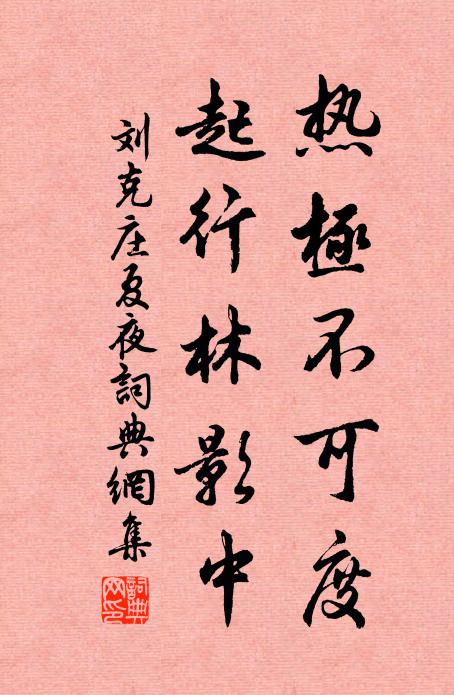 热極不可度
起行林影中
刘克庄夏夜詞典網集
詞典网印